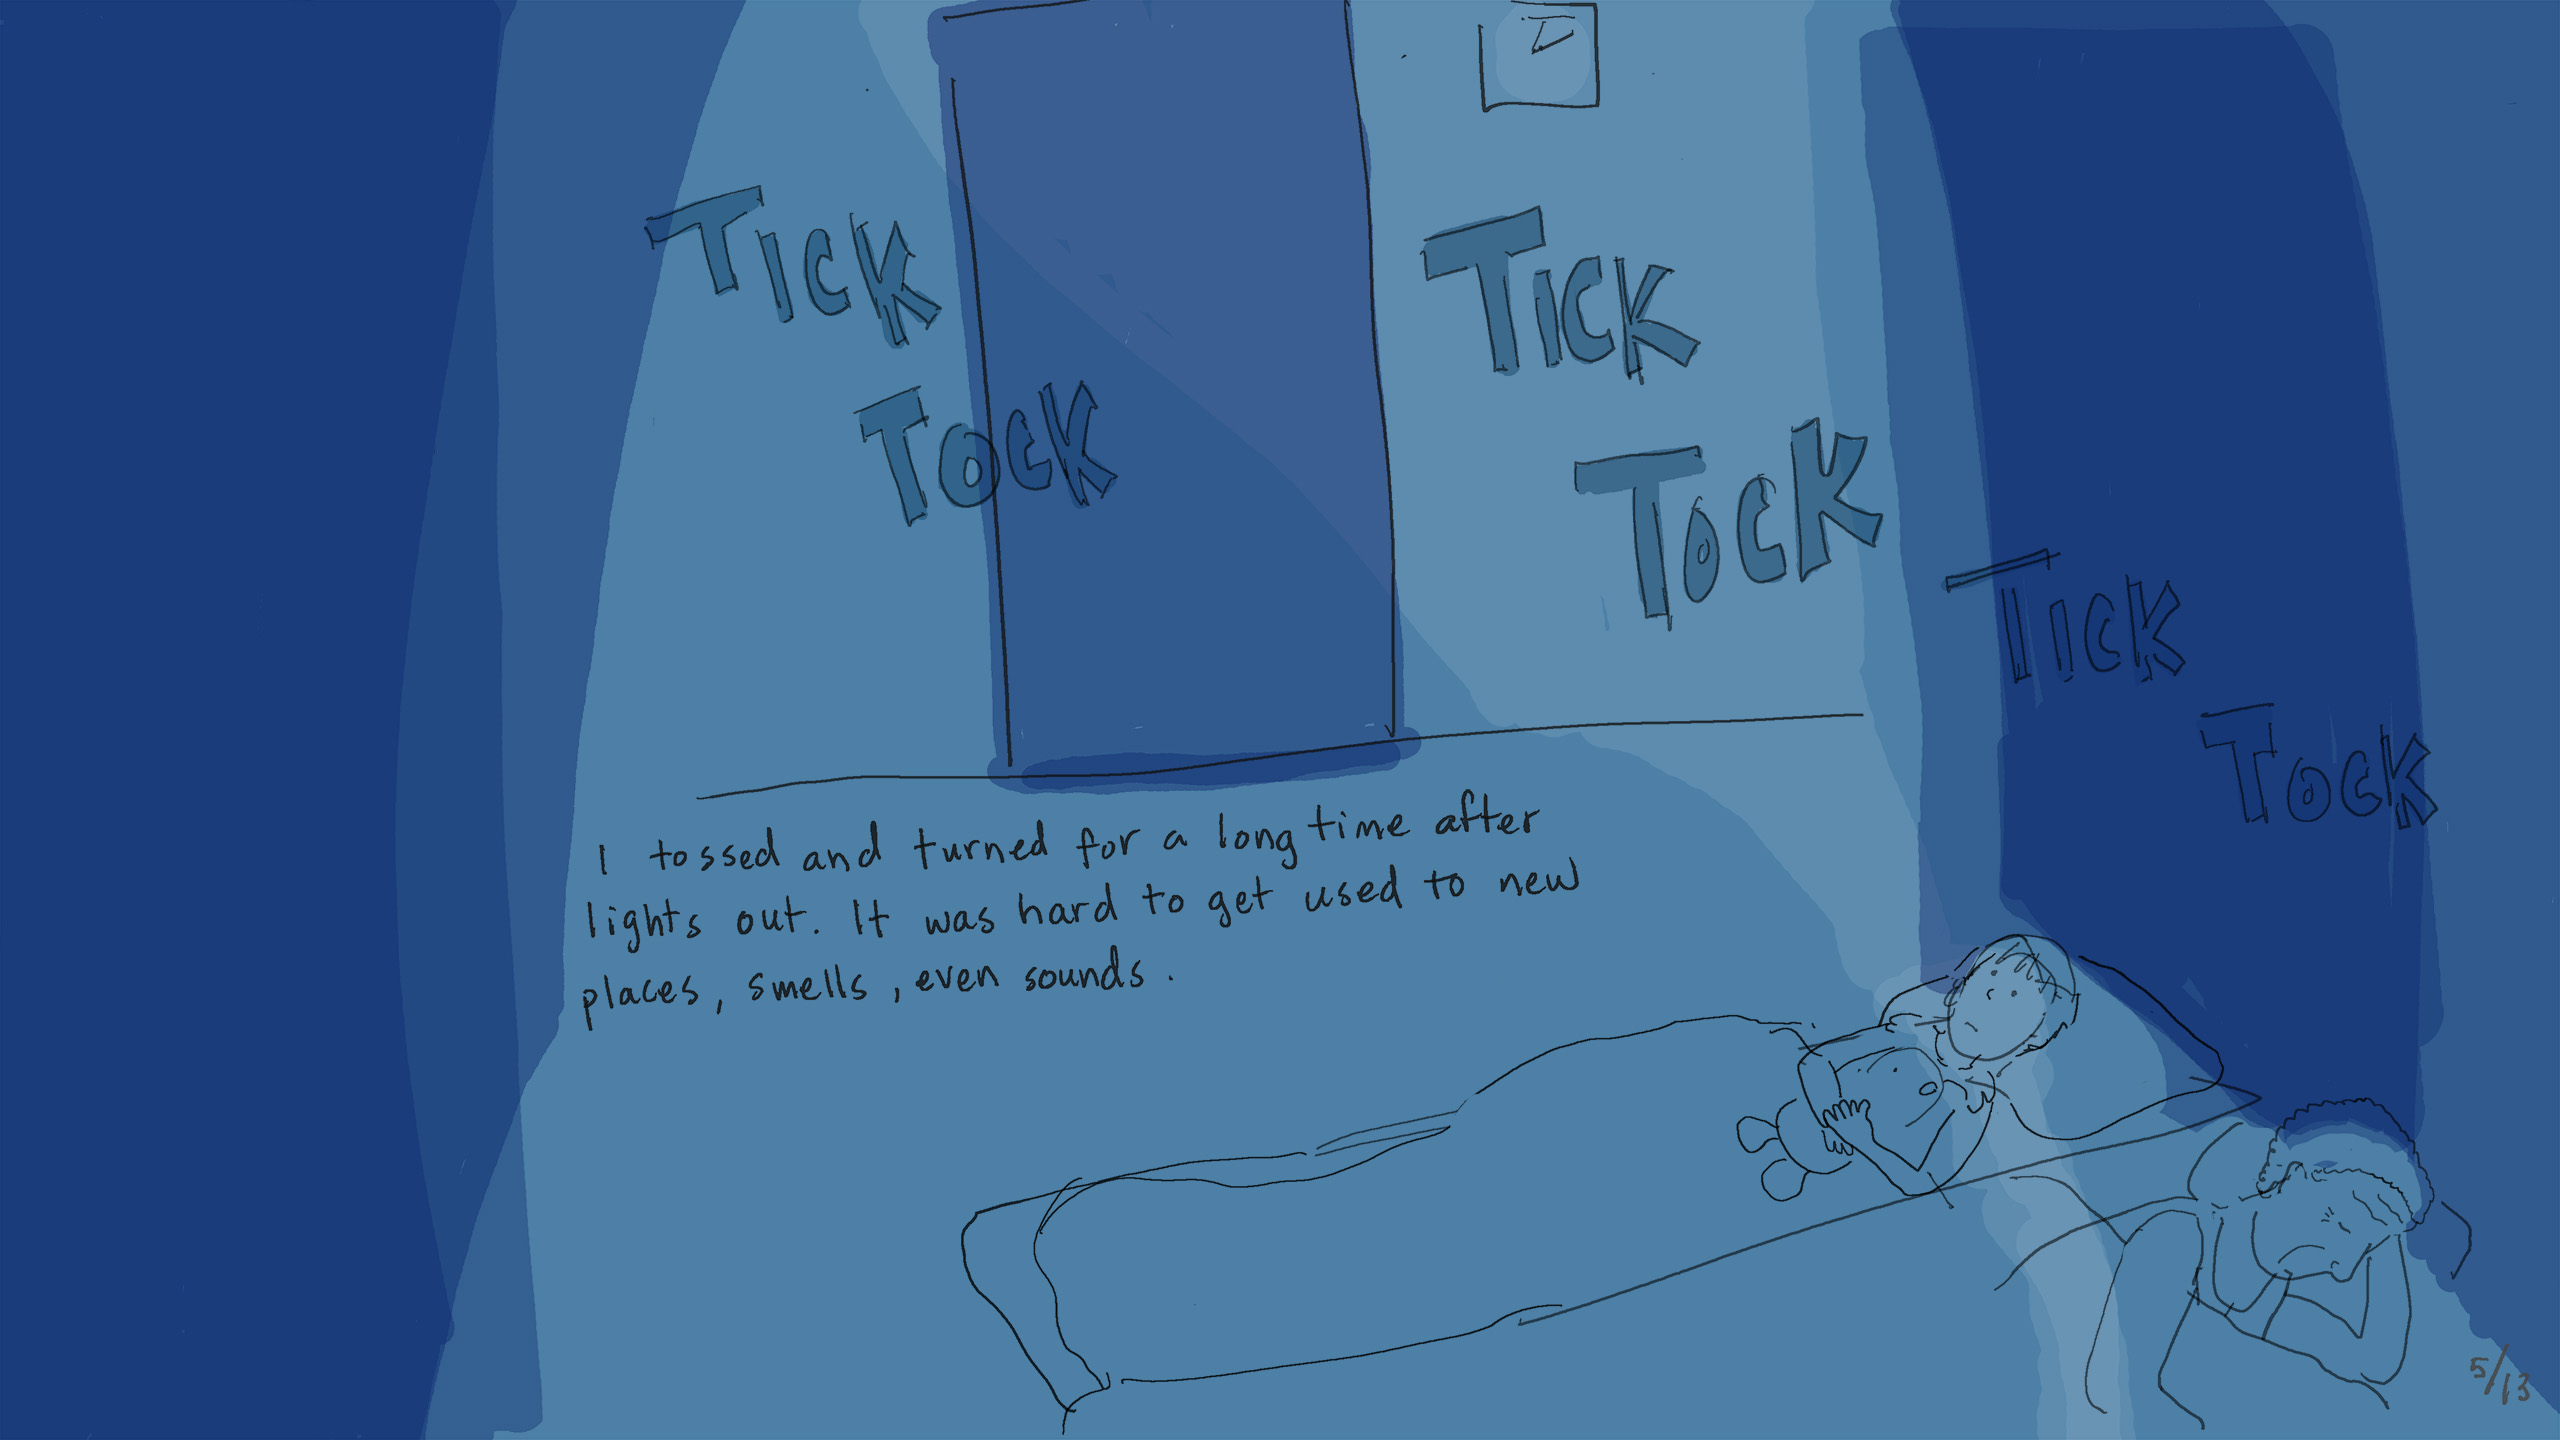 TICK
TOCK
TICK
TOCK
TICK
TOCK
I tossed and turned for a long time after
lights out. It was hard to get used to new
places, smells, even sounds.
5/13